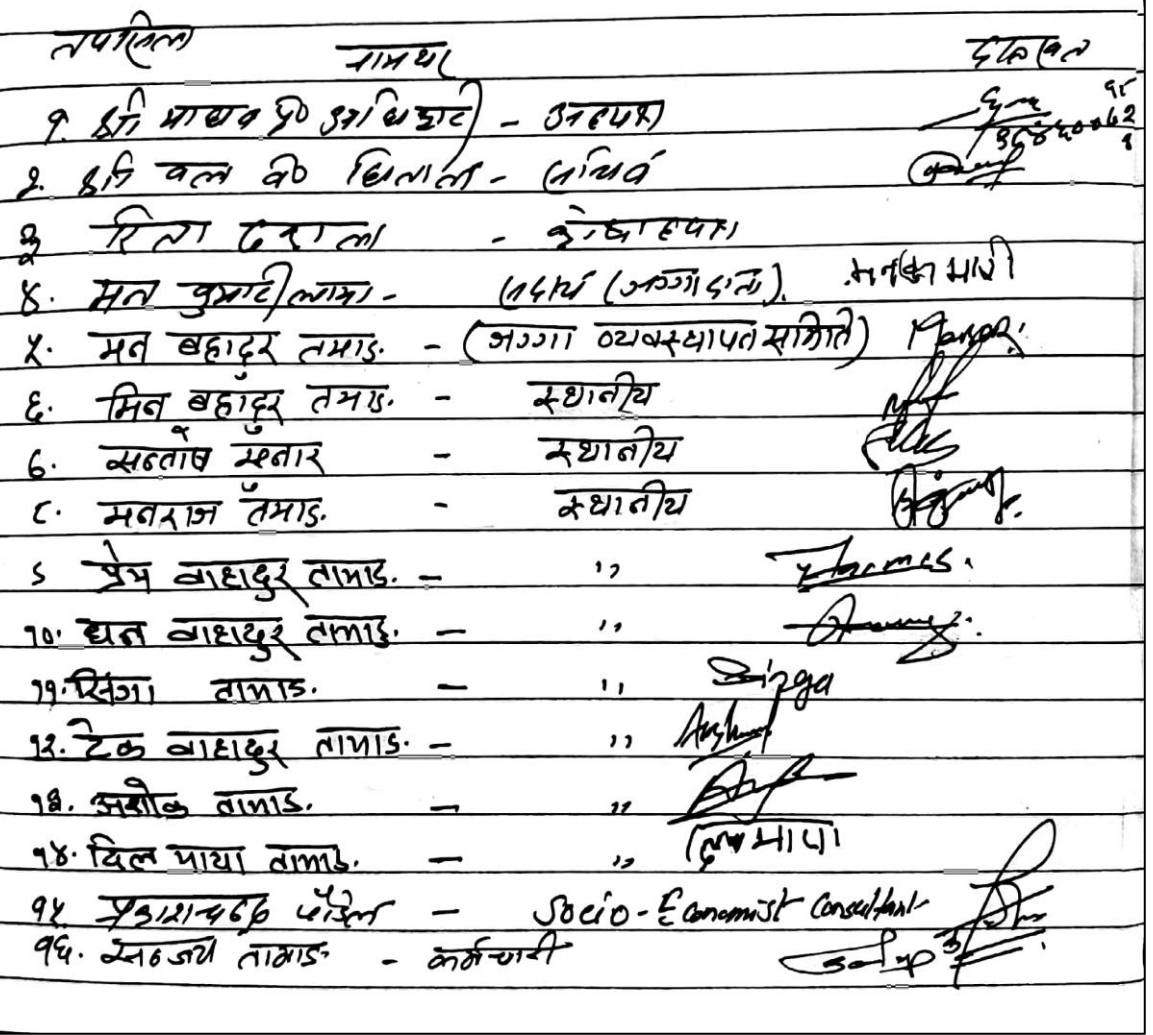 तपसिल नामथर दस्तखत
१. श्री माधव प्र० अधिकारी - अध्यक्ष
२. श्री बल ब० घिताल - सचिव
३ रिता दहाल - कोषाध्यक्ष
४. मन कुमारी लामा - सदस्य (जग्गादाता).
५. मन बहादुर तमाङ. - (जग्गा व्यवस्थापन समिति)
६. मिन बहादुर तमाङ. - स्थानीय
७. सन्तोष सुनार - स्थानीय
८. मनराज तमाङ. - स्थानीय
९ प्रेम बाहादुर तामाङ. - ,,
१०. धन बाहादुर तामाङ. - ,,
११. सिंगा तामाङ. - ,, Singa
१२. टेक बाहादुर तामाङ. - ,,
१३. अशोक तामाङ. - ,,
१४. दिल माया तामाङ. - ,,
१५ पौडेल - Socio-Economist Consultant
१६. तामाङ - कर्मचारी